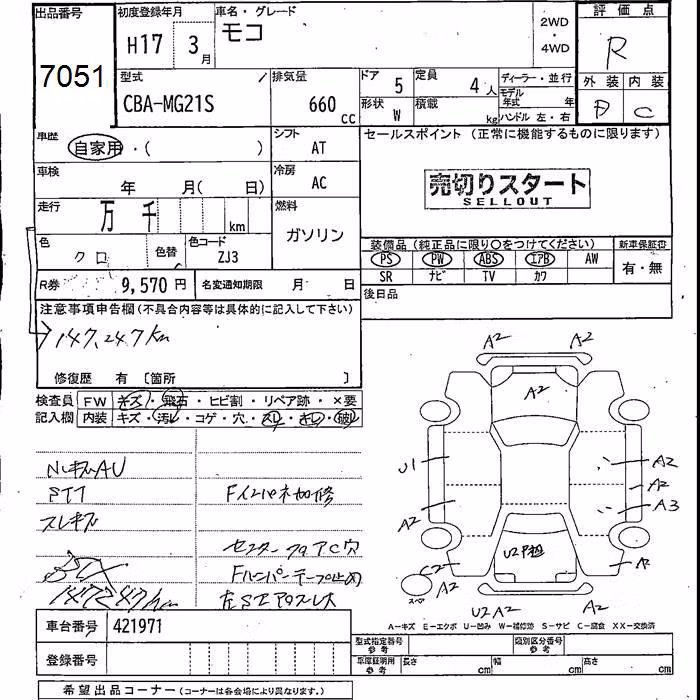 出品番号
7051
初度登録年月
H17 3月
車名・グレード
モコ
2WD
・
4WD
評価点
R
型式
CBA-MG21S
排気量
660 CC
ドア 5
定員 4人
形状 W
積載 kg
ディーラー・並行
モデル年式 年
ハンドル 左・右
外装 内装
D C
車歴
自家用・( )
シフト
AT
車検
年 月( 日)
冷房
AC
走行
万 千 km
燃料
ガソリン
色
クロ
色替
色コード
ZJ3
R券 9,570円
名変通知期限 月 日
セールスポイント(正常に機能するものに限ります)
売切りスタート
SELLOUT
装備品(純正品に限り〇をつけてください)
新車保証書
PS PW ABS エアB AW
SR ナビ TV カワ
有・無
後日品
注意事項申告欄(不具合内容等は具体的に記入して下さい)
147,247km
修復歴 有〔箇所 〕
検査員記入欄
FW キズ・飛石・ヒビ割・リペア跡・×要
内装 キズ・汚レ・コゲ・穴・スレ・キレ・破レ
スレキズ
Fインパネ加修
センターフロアC穴
Fバンパーテープ止め
147247km
A2 A2
A2
U1
A2
A2
A2
A3
C2
U2
U2 A2
A2
スペア
A-キズ E-エクボ U-凹み W-補修跡 S-サビ C-腐食 XX-交換済
車台番号 421971
登録番号
型式指定番号 参考
類別区分番号 参考
車庫証明用 参考
長さ cm
幅 cm
高さ cm
希望出品コーナー(コーナーは各会場により異なります。)